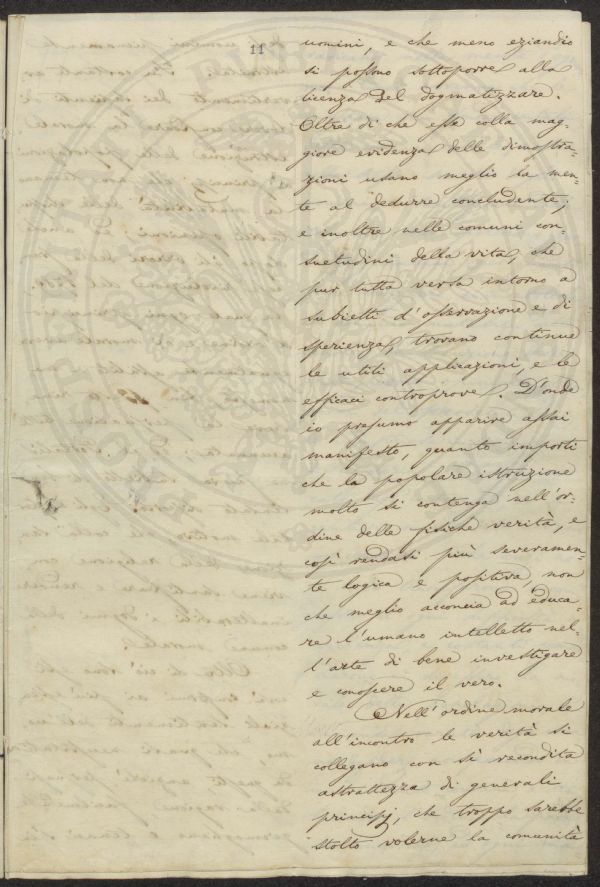 11
uomini, e che meno eziandio
si possono sottoporre alla
licenza del dogmatizzare.
Oltre di che esse colla mag-
giore evidenza delle dimostra-
zioni usano meglio la men-
te al dedurre concludente;
e inoltre nelle comuni con-
suetudini della vita, che
pur tutta versa intorno a
subietti d'osservazione e di
sperienza, trovano continue
le utili applicazioni, e le
efficaci controprove. D'onde
io presumo apparire assai
manifesto, quanto importi
che la popolare istruzione
molto si contenga nell'or-
dine delle fisiche verità, e
così rendasi più severamen-
te logica e positiva, non
che meglio acconcia ad educa-
re l'umano intelletto nel-
l'arte di bene investigare
e conoscere il vero.
Nell'ordine morale
all'incontro le verità si
collegano con sì recondita
astrattezza di generali
principj, che troppo sarebbe
stolto volerne la comunità